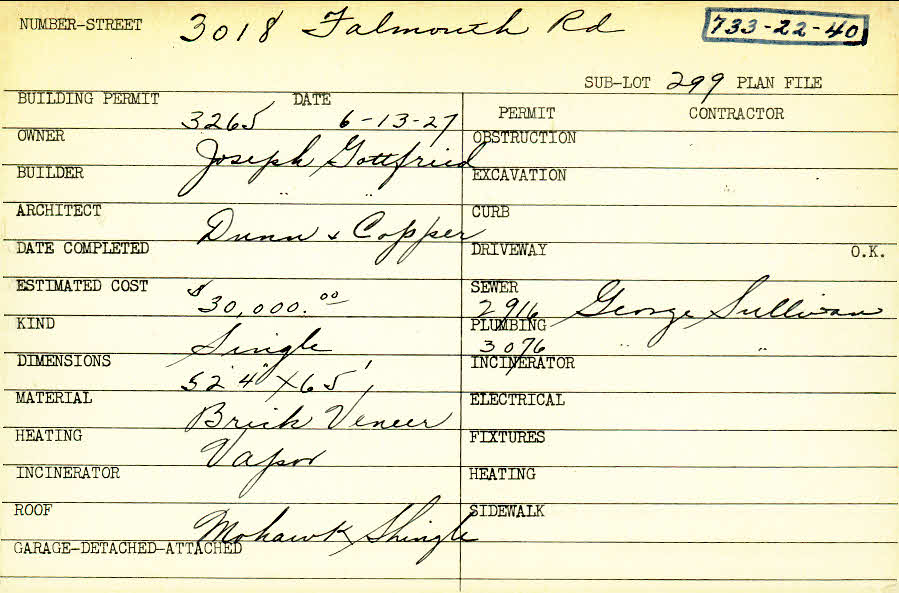 NUMBER-STREET 3018 Falmouth Rd 733-22-40
SUB-LOT 299 PLAN FILE
BUILDING PERMIT 3265 DATE 6-13-27
PERMIT CONTRACTOR
OWNER Joseph Gottfried
OBSTRUCTION
BUILDER " "
EXCAVATION
ARCHITECT Dunn + Copper
CURB
DATE COMPLETED
DRIVEWAY O.K.
ESTIMATED COST $30,000.00
SEWER 2916 George Sullivan
KIND Single
PLUMBING 3076 " "
DIMENSIONS 52'4" X 65'
INCINERATOR
MATERIAL Brick Veneer
ELECTRICAL
HEATING Vapor
FIXTURES
INCINERATOR
HEATING
ROOF Mohawk Shingle
SIDEWALK
GARAGE-DETACHED-ATTACHED